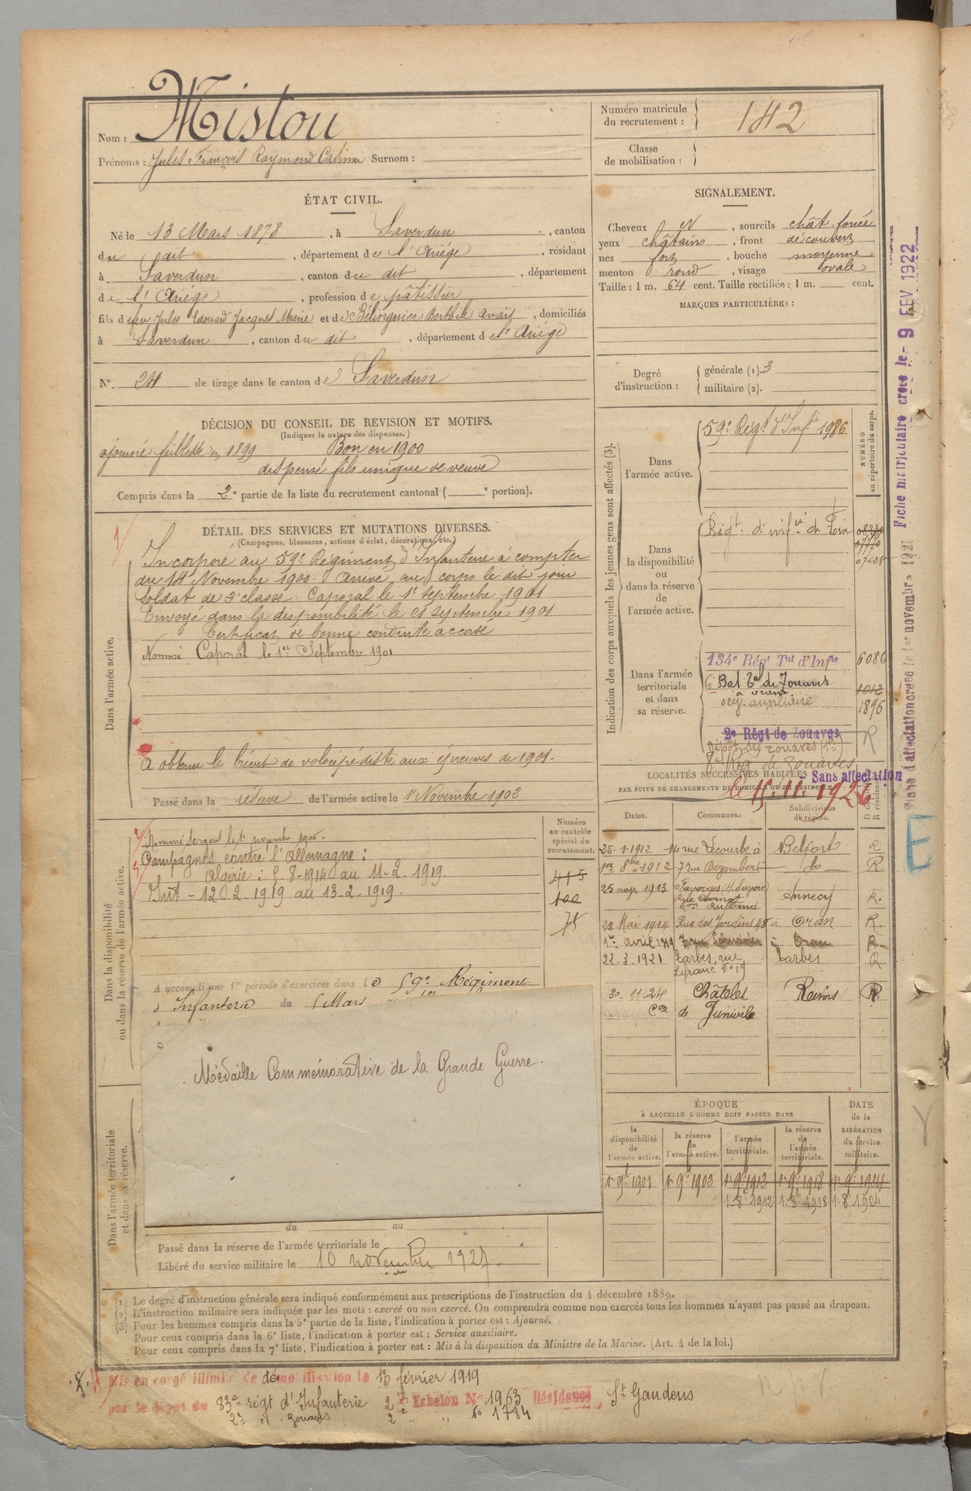 Nom : Mistou
Prénoms : Jules François Raymond Casimir Surnom :
ÉTAT CIVIL.
Né le 13 Mars 1878, à Saverdun, canton
du dit, département de l'Ariége, résidant
à Saverdun, canton du dit, département
de l'Ariége, profession de pâtissier
fils de feu Jules Edouard Jacques Marie et de Bélinguier Berthile Anaïs, domiciliés
à Saverdun, canton du dit, département de l'Ariége
N° 24 de tirage dans le canton de Saverdun
DÉCISION DU CONSEIL DE REVISION ET MOTIFS.
(Indiquer la nature des dispenses.)
ajourné faiblesse en 1899 Bon en 1900
dispensé fils unique de veuve
Compris dans la 2e partie de la liste du recrutement cantonal ( e portion).
DÉTAIL DES SERVICES ET MUTATIONS DIVERSES.
(Campagnes, blessures, actions d'éclat, décorations, etc.)
Dans l'armée active.
Incorporé au 59e Régiment d'Infanterie à compter
du 14 Novembre 1900. Arrivé au corps le dit jour
Soldat de 2e classe. Caporal le 1er Septembre 1901
Envoyé dans la disponibilité le 21 Septembre 1901
Certificat de bonne conduite accordé
Nommé Caporal le 1er Septembre 1901
A obtenu le brevet de vélocipédiste aux épreuves de 1901.
Passé dans la réserve de l'armée active le 1er Novembre 1902
Dans la disponibilité
ou dans la réserve de l'armée active.
Nommé Sergent le 1er novembre 1905.
Campagnes contre l'Allemagne :
Algérie : 5-8-1914 au 11-2-1919
Int - 12-2-1919 au 13-2-1919.
Numéro
au contrôle
spécial du
recrutement.
415
75
A accompli une 1re période d'exercices dans le 59e Régiment
d'Infanterie du 5 Mars
Médaille Commémorative de la Grande Guerre.
Dans l'armée territoriale
et dans sa réserve.
du au
Passé dans la réserve de l'armée territoriale le
Libéré du service militaire le 10 novembre 1927.
Numéro matricule
du recrutement : 142
Classe
de mobilisation :
SIGNALEMENT.
Cheveux , sourcils chât foncé
yeux châtains, front découvert
nez fort, bouche moyenne
menton rond, visage ovale
Taille : 1 m. 64 cent. Taille rectifiée : 1 m. cent.
MARQUES PARTICULIÈRES :
Degré
d'instruction :
générale (1). 3
militaire (2).
Indication des corps auxquels les jeunes gens sont affectés (3).
NUMÉRO
au répertoire du corps.
Dans
l'armée active.
59e Régt d'Infie 1986
Dans
la disponibilité
ou
dans la réserve
de
l'armée active.
Régt d'infie de Foix
Dans l'armée
territoriale
et dans
sa réserve.
134e Régt Tal d'Infie 6080
6e Bat Tal de Zouaves
à Oran 1012
serv. auxiliaire 1896
2e Régt de Zouaves R
Dépôt des zouaves
Rég. de zouaves
Sans affectation
le 15.11.1926
LOCALITÉS SUCCESSIVES HABITÉES
PAR SUITE DE CHANGEMENTS DE DOMICILE OU DE RÉSIDENCE.
Dates. Communes. Subdivisions
de région.
25-1-1912 14 rue Lecourbe à Belfort R
1er 8bre 1912 7 rue Do R
25 nov. 1913 Faverges Hte Savoie Annecy R.
28 Mai 1914 Rue des Jardins 48 à Oran R.
1er avril 1919 à Oran R
22-3-1921 Tarbes, rue Tarbes R
20-11-24 Châtelet Reims R
Con de Juniville
ÉPOQUE
À LAQUELLE L'HOMME DOIT PASSER DANS
DATE
de la
LIBÉRATION
du service
militaire.
la
disponibilité
de
l'armée active.
la réserve
de
l'armée active.
l'armée
territoriale.
la réserve
de
l'armée
territoriale.
1er 9e 1901 1er 9e 1902 1er 9e 1912 1er 9e 1918 1er 9e 1924
1-8e 1912 1-8e 1918 1-8-1924
(1) Le degré d'instruction générale sera indiqué conformément aux prescriptions de l'instruction du 4 décembre 1889.
(2) L'instruction militaire sera indiquée par les mots : exercé ou non exercé. On comprendra comme non exercés tous les hommes n'ayant pas passé au drapeau.
(3) Pour les hommes compris dans la 5e partie de la liste, l'indication à porter est : Ajourné.
Pour ceux compris dans la 6e liste, l'indication à porter est : Service auxiliaire.
Pour ceux compris dans la 7e liste, l'indication à porter est : Mis à la disposition du Ministre de la Marine. (Art. 4 de la loi.)
Mis en congé illimité de démobilisation le 13 février 1919
par le dépôt du 83e régt d'Infanterie 2e Echelon No 1963 Résidence St Gaudens
2e " Zouaves 2e " No 1784
Fiche matriculaire créée le - 9 FEV 1922
Fiche d'affectation créée le 1er novembre 1921